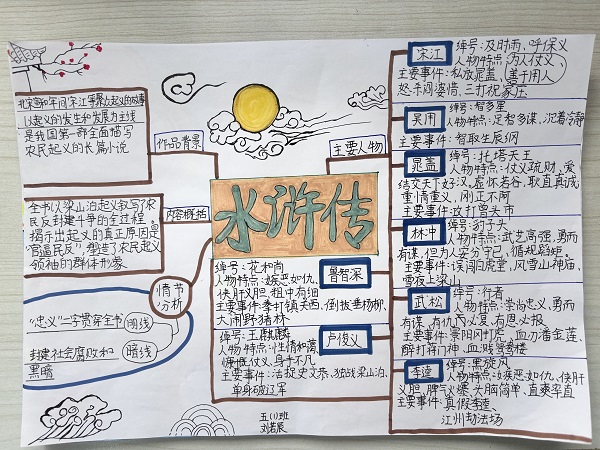 水浒传
作品背景
北宋宣和年间宋江等聚众起义的故事
以起义的发生和发展为主线
是我国第一部全面描写
农民起义的长篇小说
内容概括
全书以梁山泊起义叙写了农
民反封建斗争的全过程。
揭示出起义的真正原因是
"官逼民反" 塑造了农民起义
领袖的群体形象
情节
分析
"忠义"二字贯穿全书
明线
封建社会腐败和
黑暗
暗线
主要人物
宋江
绰号:及时雨、呼保义
人物特点:为人仗义、
主要事件:私放晁盖、善于用人
怒杀阎婆惜,三打祝家庄
吴用
绰号:智多星
人物特点:足智多谋、沉着冷静
主要事件:智取生辰纲
晁盖
绰号:托塔天王
人物特点:仗义疏财、爱
结交天下好汉、虚怀若谷、耿直真诚
重情重义、刚正不阿
主要事件:攻打曾头市
林冲
绰号:豹子头
人物特点:武艺高强、勇而
有谋、但为人安分守己、循规蹈矩。
主要事件:误闯白虎堂、风雪山神庙、
雪夜上梁山
武松
绰号:行者
人物特点:崇尚忠义、勇而
有谋、有仇必复、有恩必报
主要事件:景阳冈打虎、血刃潘金莲、
醉打蒋门神、血溅鸳鸯楼
李逵
绰号:黑旋风
人物特点:嫉恶如仇、侠肝
义胆、脾气火暴、头脑简单、直爽率直
主要事件:真假李逵、
江州劫法场
鲁智深
绰号:花和尚
人物特点:嫉恶如仇、
侠肝义胆、粗中有细
主要事件:拳打镇关西、倒拔垂杨柳、
大闹野猪林
卢俊义
绰号:玉麒麟
人物特点:性情和蔼、
慷慨仗义、身手不凡
主要事件:活捉史文恭、独战梁山泊、
单身破辽军
五(1)班
刘若辰